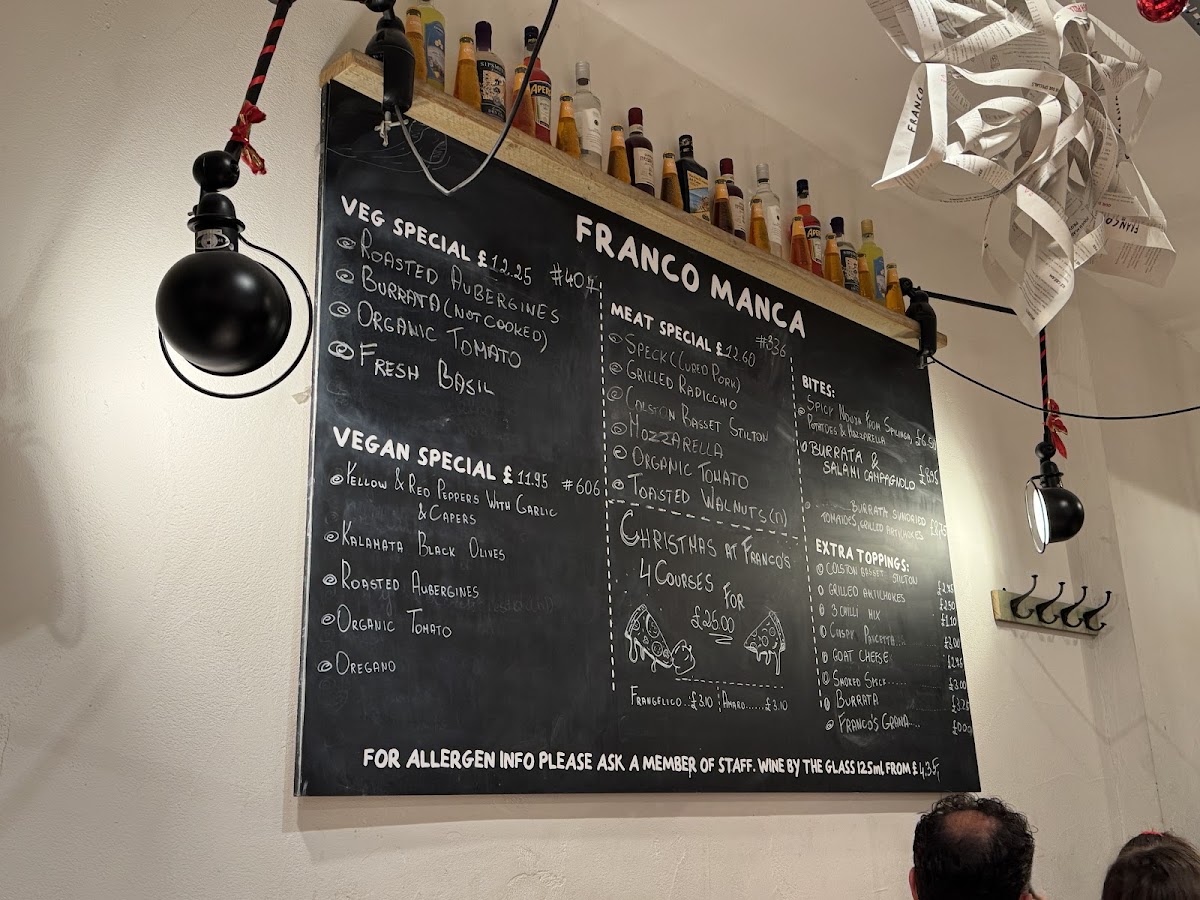 FRANCO MANCA
VEG SPECIAL £12.25 #407
ROASTED AUBERGINES
BURRATA (NOT COOKED)
ORGANIC TOMATO
FRESH BASIL
VEGAN SPECIAL £11.95 #606
YELLOW & RED PEPPERS WITH GARLIC
& CAPERS
KALAMATA BLACK OLIVES
ROASTED AUBERGINES
ORGANIC TOMATO
OREGANO
MEAT SPECIAL £12.60 #836
SPECK (CURED PORK)
GRILLED RADICCHIO
COLSTON BASSET STILTON
MOZZARELLA
ORGANIC TOMATO
TOASTED WALNUTS (N)
CHRISTMAS AT FRANCO'S
4 COURSES FOR
£26.00
FRANGELICO..£3.10 AMARO......£3.10
BITES:
SPICY NDUJA FROM SPILINGA, £6.50
POTATOES & MOZZARELLA
BURRATA &
SALAMI CAMPAGNOLO £8.95
BURRATA SUNDRIED
TOMATOES, GRILLED ARTICHOKES £8.75
EXTRA TOPPINGS:
COLSTON BASSET STILTON £2.95
GRILLED ARTICHOKES £2.50
3 CHILLI MIX £1.10
CRISPY PANCETTA... £3.00
GOAT CHEESE £2.95
SMOKED SPECK....... £3.00
BURRATA
FRANCO'S GRANA....
FOR ALLERGEN INFO PLEASE ASK A MEMBER OF STAFF. WINE BY THE GLASS 125ml FROM £4.35
APEROL
FRANCO
FRANCO